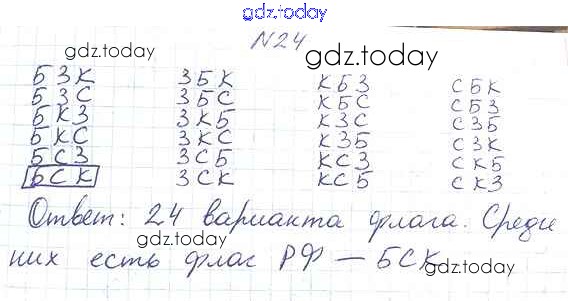 gdz.today
N24
gdz.today
gdz.today
БЗК ЗБК КБЗ СБК
БЗС ЗБС КБС СБЗ
БКЗ ЗКБ КЗС СЗБ
БКС ЗКС КЗБ СЗК
БСЗ ЗСБ КСЗ СКБ
БСК ЗСК КСБ СКЗ
Ответ: 24 варианта флага. Среди
gdz.today
них есть флаг РФ — БСК
gdz.today